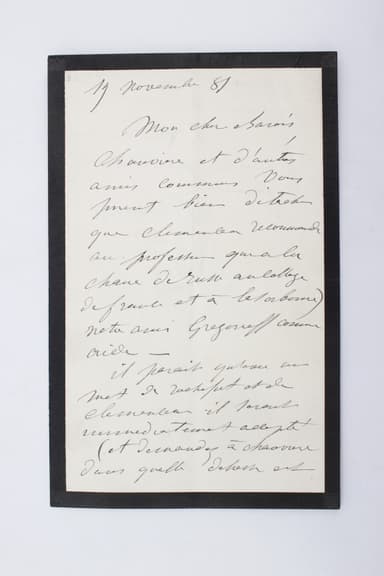 19 novembre 81
Mon cher
Chavoine et d'autres
amis communs vous
prient bien d'
que Clemenceau recommande
au professeur qui a la
chaire de russe au college
de france et à la sorbonne)
notre ami Gregoreff comme
aide —
il parait qu'avec un
mot de rochefort et de
Clemenceau il serait
immediatement adopté
(et demandez à chavoine
dans quelle detresse est